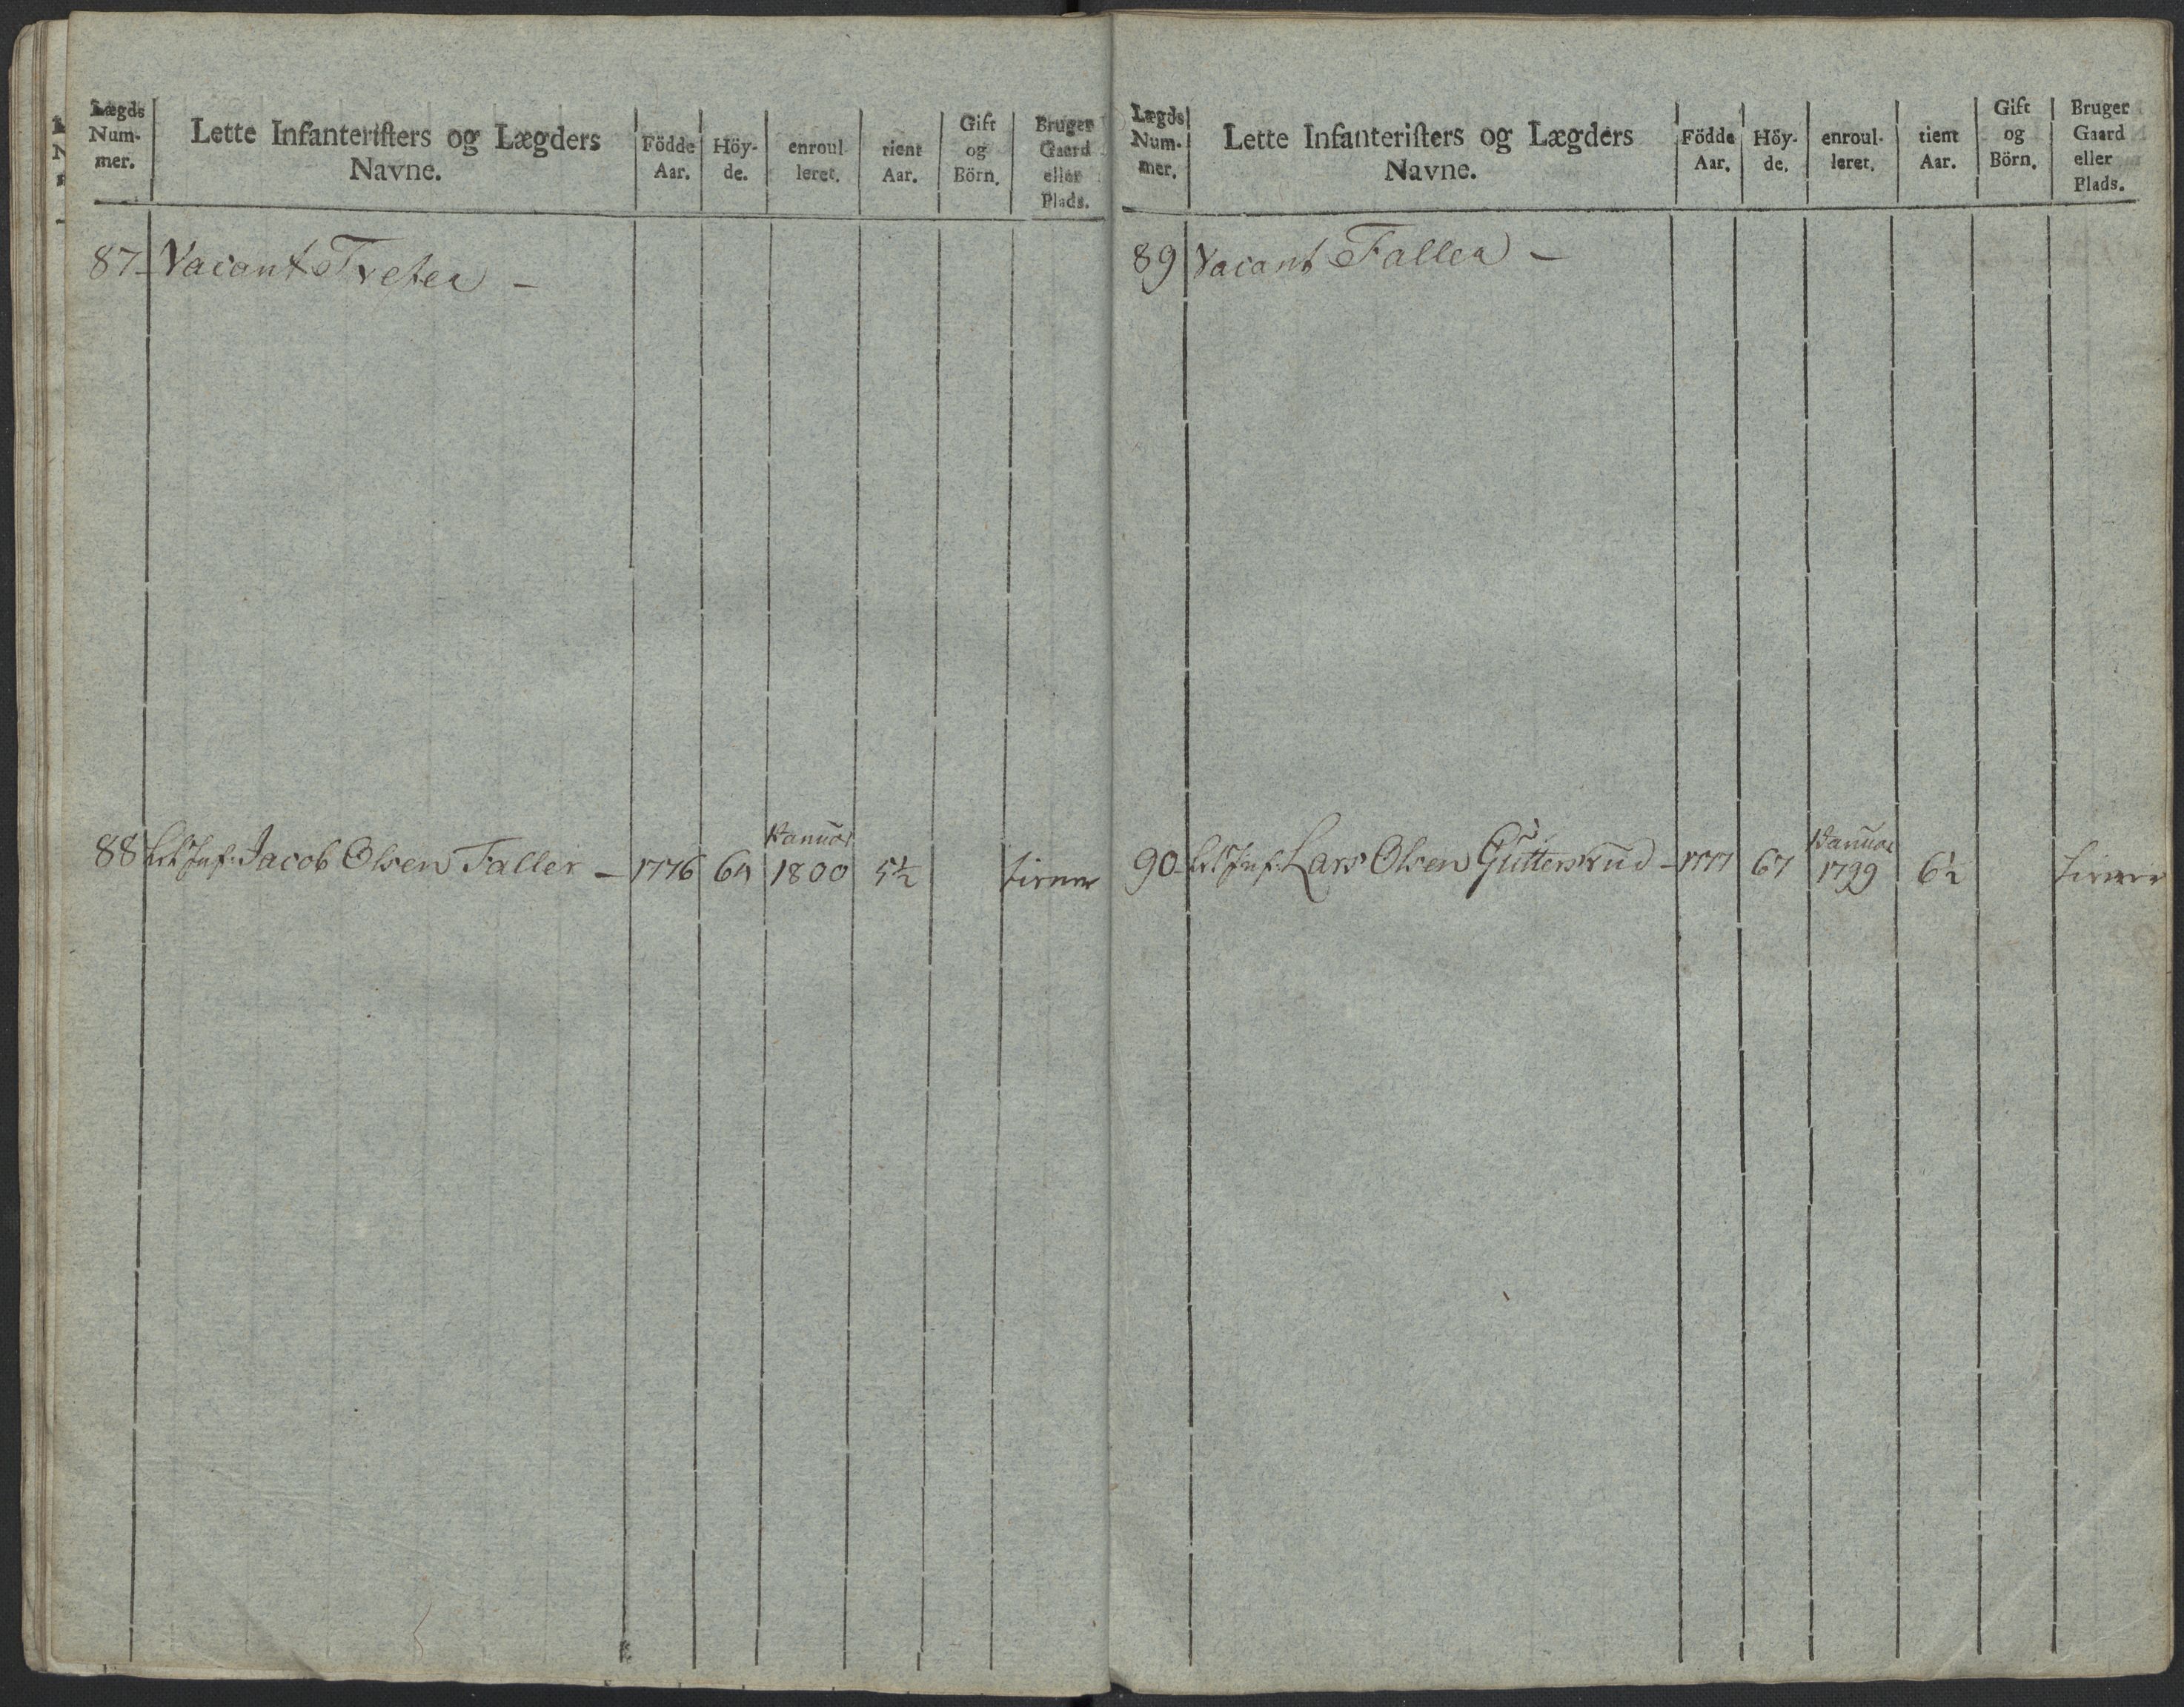 Lægds Num- mer.
Lette Infanterister og Lægders Navne.
Födde Aar.
Höy- de.
enroul leret.
tient Aar.
Gift og Börn.
Bruger Gaard eller Plads.
87 Vacant Tveter -
88 Let Inf: Jacob Olsen Faller - 1776 64 Januar 1800 5½ tiener
Lægds Num- mer.
Lette Infanterister og Lægders Navne.
Födde Aar.
Höy- de.
enroul- leret.
tient Aar.
Gift og Börn.
Bruger Gaard eller Plads.
89 Vacant Falle -
90 Let Inf: Lars Olsen Gutterskud - 1777 67 Januar 1799 6½ tiener